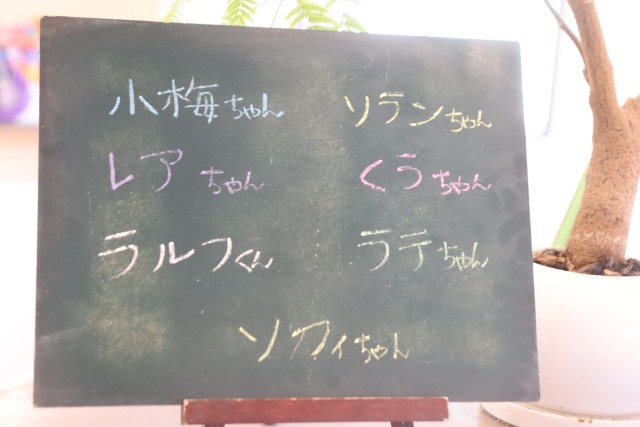 小梅ちゃん ソランちゃん
レアちゃん くうちゃん
ラルフくん ラテちゃん
ソフィちゃん